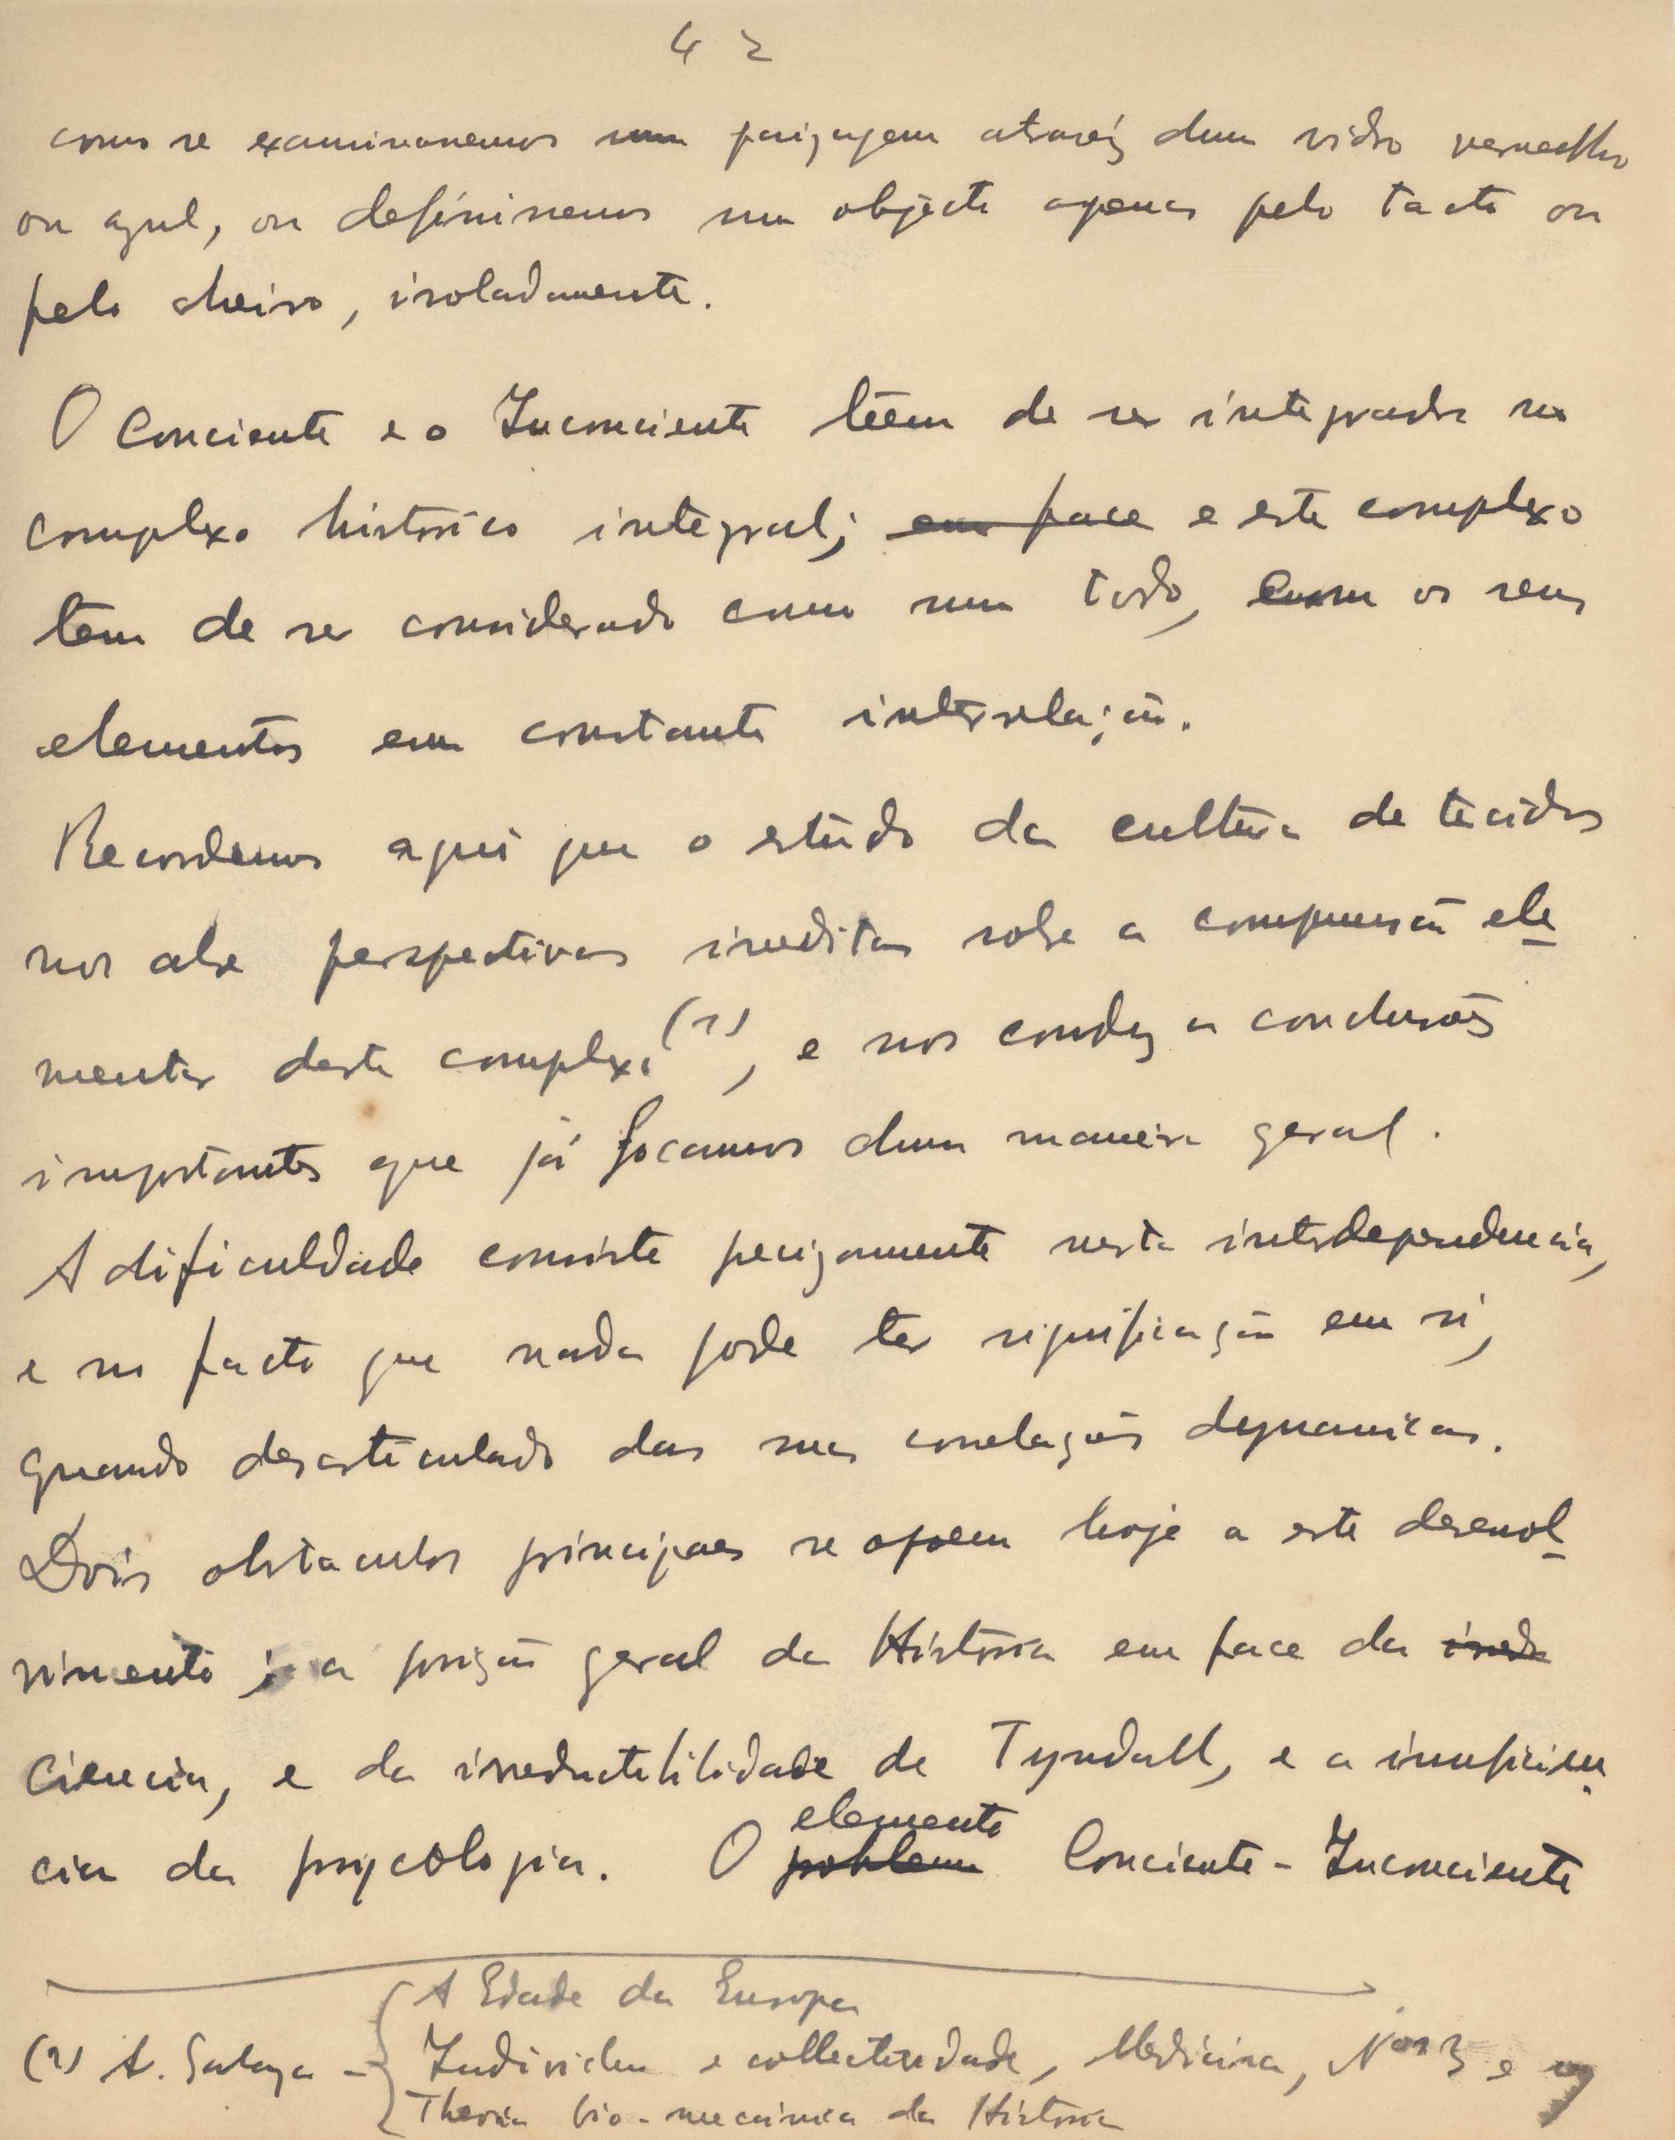 42
como se examinanemos uma paizagem atravéz dum vidro vermelho
ou azul, ou definiremos um objecto apenas pelo tacto ou
pelo cheiro, isoladamente.
O Conciente e o Inconciente têem de ser integrados no
complexo historico integral; em face e este complexo
tem de ser considerado como um todo, com os seus
elementos em constante interrelação.
Recordemos aqui que o estudo da cultura de tecidos
nos abre perspectivas ineditas sobre a compreensão ele
mentar deste complexo (1), e nos conduz a conclusões
importantes que já focamos duma maneira geral.
A dificuldade consiste precizamente nesta interdependencia,
e no facto que nada pode ter significação em si,
quando desarticulado das suas correlações dynamicas.
Dois obstaculos principaes se opoem hoje a este desenvol-
vimento; a posição geral da Historia em face da
ciencia, e da irreductibilidade de Tyndall, e a insuficien-
cia da psycologia. O problema elemento Conciente-Inconciente
A Edade da Europa
(1) A. - Individuo e collectividade, Medicina, Nos 3 e
Theoria bio-mecanica da Historia